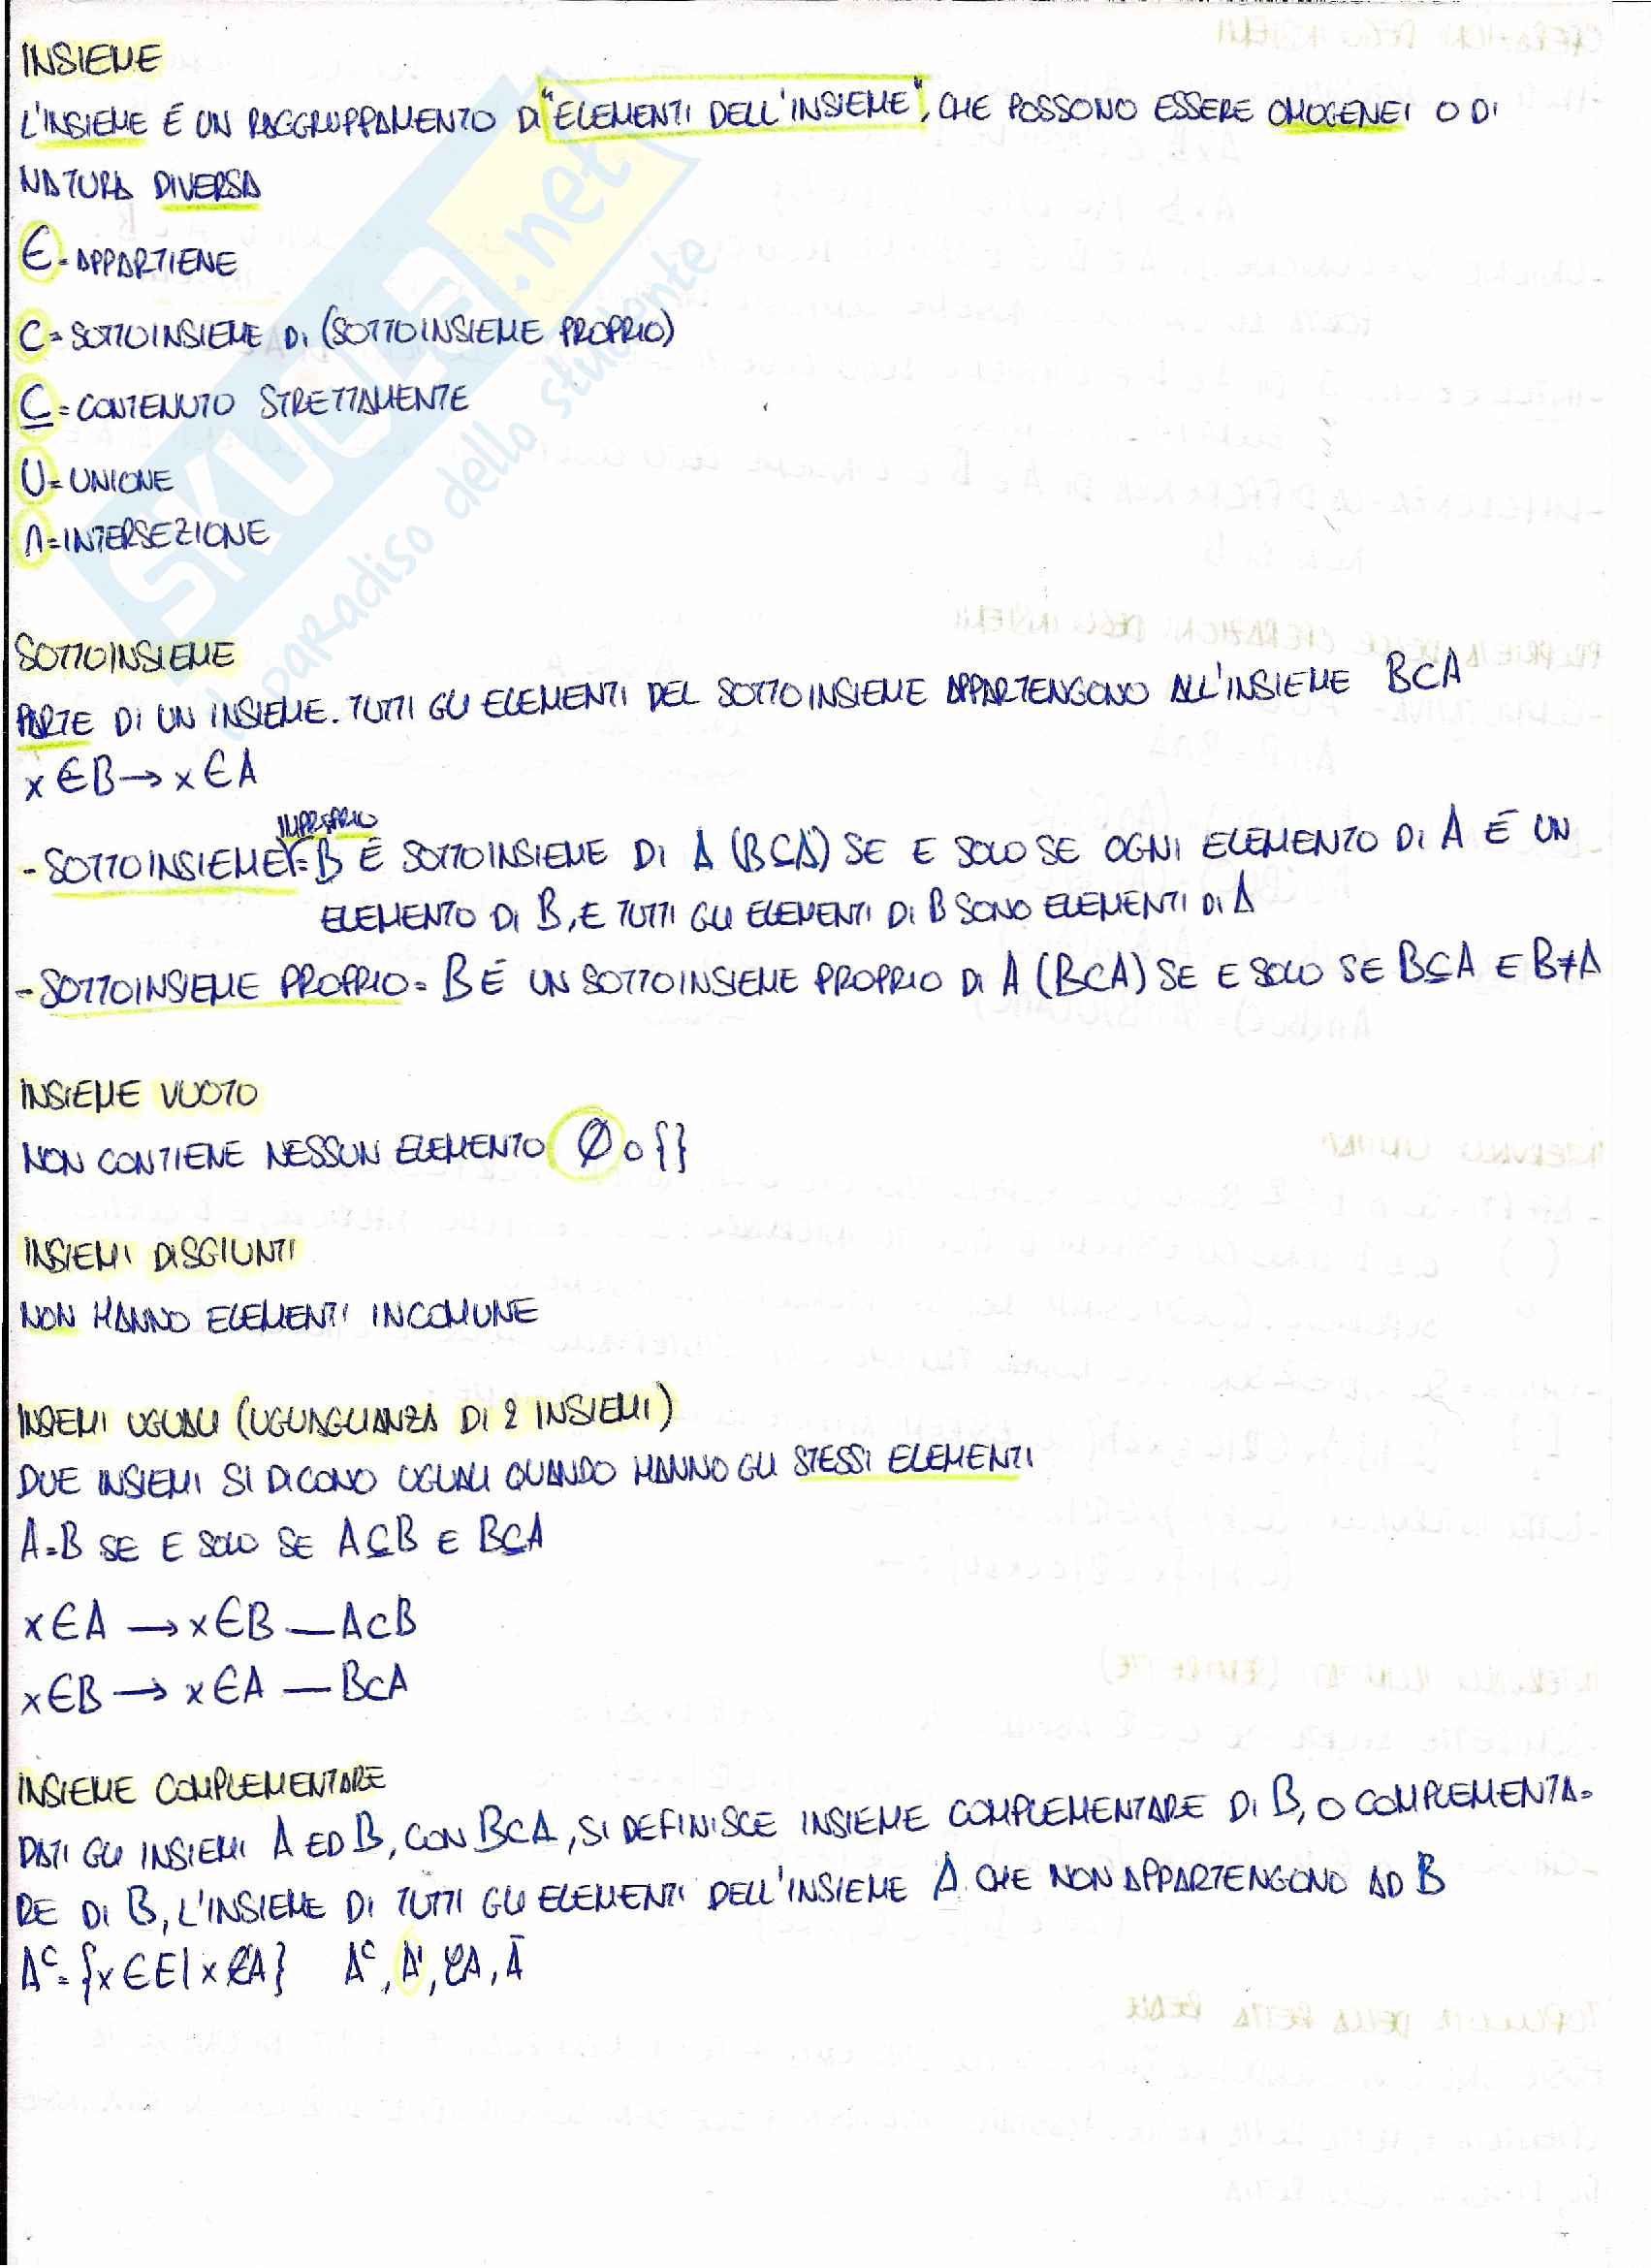 INSIEME
L'INSIEME É UN RAGGRUPPAMENTO DI "ELEMENTI DELL'INSIEME", CHE POSSONO ESSERE OMOGENEI O DI
NATURA DIVERSA
∈= APPARTIENE
⊂= SOTTOINSIEME DI (SOTTOINSIEME PROPRIO)
⊆= CONTENUTO STRETTAMENTE
U= UNIONE
∩= INTERSEZIONE
SKUOLA.net
il paradiso dello studente
SOTTOINSIEME
PARTE DI UN INSIEME. TUTTI GLI ELEMENTI DEL SOTTOINSIEME APPARTENGONO ALL'INSIEME B⊂A
x∈B→x∈A
IMPROPRIO
- SOTTOINSIEME = B É SOTTOINSIEME DI A (B⊆A) SE E SOLO SE OGNI ELEMENTO DI A É UN
ELEMENTO DI B, E TUTTI GLI ELEMENTI DI B SONO ELEMENTI DI A
- SOTTOINSIEME PROPRIO = B É UN SOTTOINSIEME PROPRIO DI A (B⊂A) SE E SOLO SE B⊆A E B≠A
INSIEME VUOTO
NON CONTIENE NESSUN ELEMENTO Ø o {}
INSIEMI DISGIUNTI
NON HANNO ELEMENTI IN COMUNE
INSIEMI UGUALI (UGUAGLIANZA DI 2 INSIEMI)
DUE INSIEMI SI DICONO UGUALI QUANDO HANNO GLI STESSI ELEMENTI
A=B SE E SOLO SE A⊆B E B⊆A
x∈A → x∈B — A⊂B
x∈B → x∈A — B⊂A
INSIEME COMPLEMENTARE
DATI GLI INSIEMI A ED B, CON B⊂A, SI DEFINISCE INSIEME COMPLEMENTARE DI B, O COMPLEMENTA-
RE DI B, L'INSIEME DI TUTTI GLI ELEMENTI DELL'INSIEME A CHE NON APPARTENGONO AD B
Aᶜ= {x∈E| x∉A} Aᶜ, A', ∁A, Ā